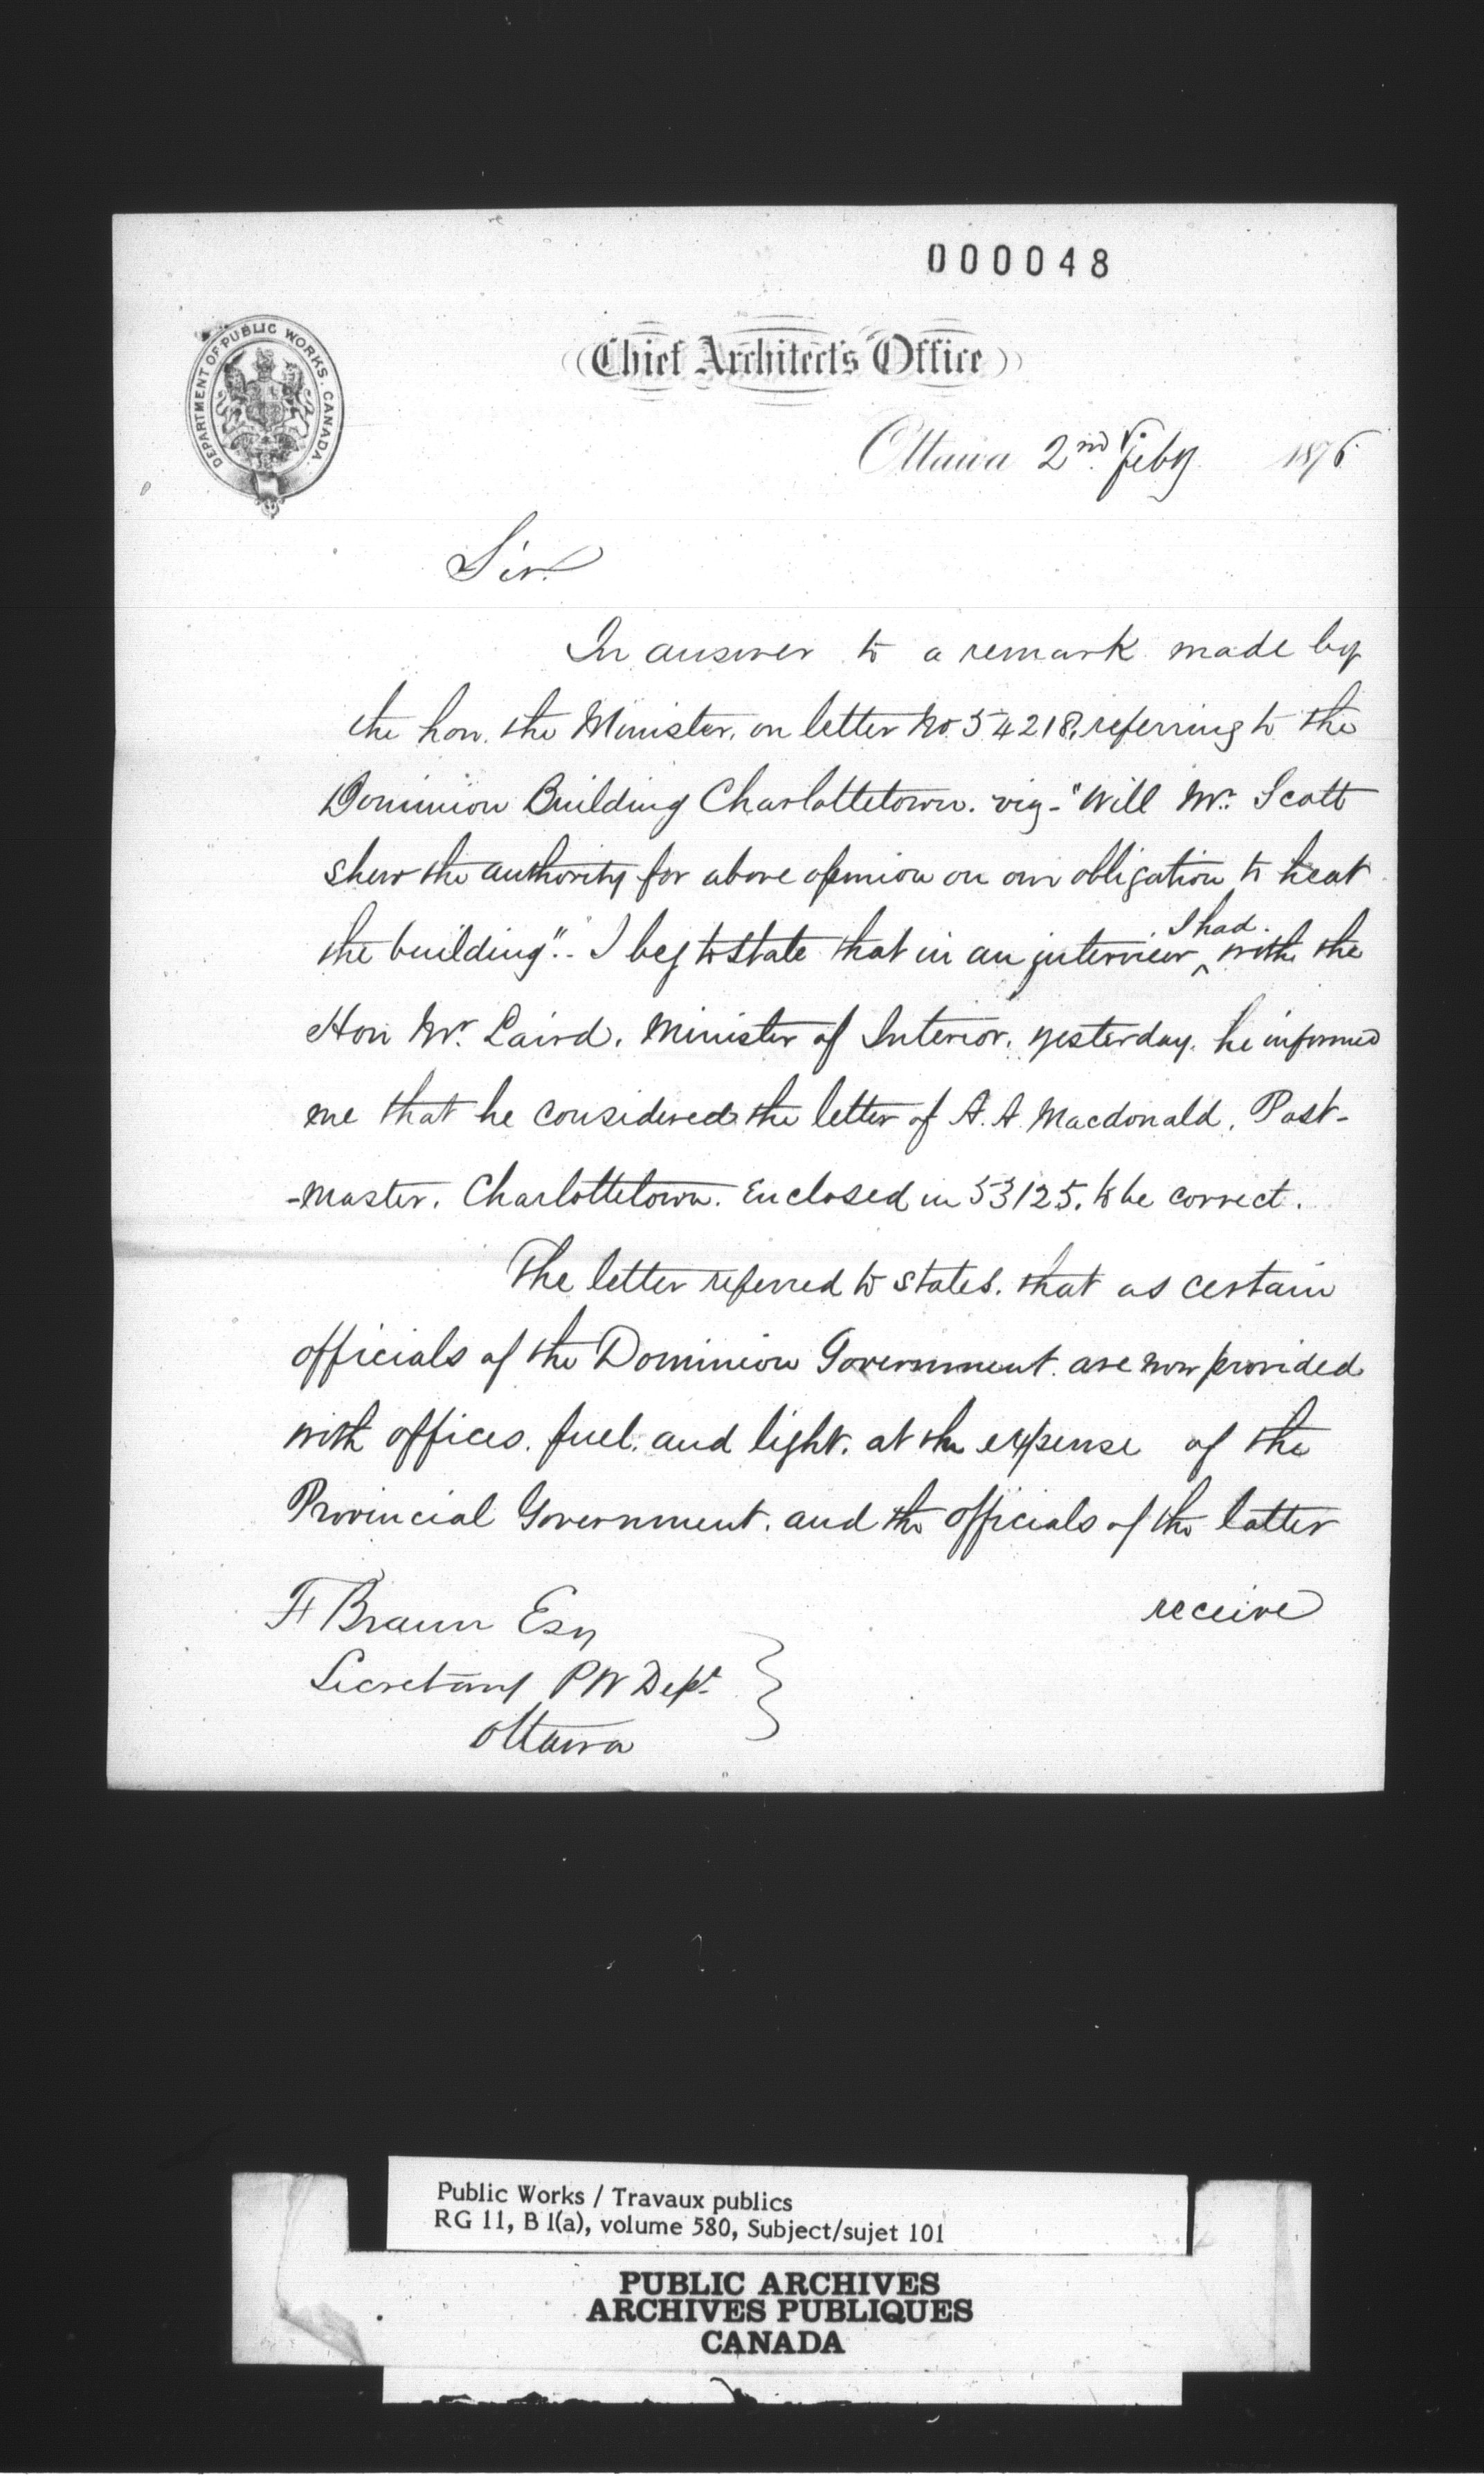 000048
DEPARTMENT OF PUBLIC WORKS. CANADA.
Chief Architect's Office
Ottawa 2nd Feby 1876
Sir.
In answer to a remark made by
the hon. the Minister. on letter No 54218. referring to the
Dominion Building Charlottetown. viz- "Will Mr. Scott
shew the authority for above opinion on our obligation to heat
the building". - I beg to state that in an interview ^ I had. with the
Hon Mr. Laird. Minister of Interior. yesterday. he informed
me that he considered the letter of A. A. Macdonald. Post-
-master. Charlottetown. Enclosed in 53125. to be correct.
The letter referred to states. that as certain
officials of the Dominion Government. are now provided
with offices. fuel. and light. at the expense of the
Provincial Government. and the officials of the latter
receive
F Braun Esq
Secretary P W Dept
Ottawa
Public Works / Travaux publics
RG 11, B 1(a), volume 580, Subject/sujet 101
PUBLIC ARCHIVES
ARCHIVES PUBLIQUES
CANADA